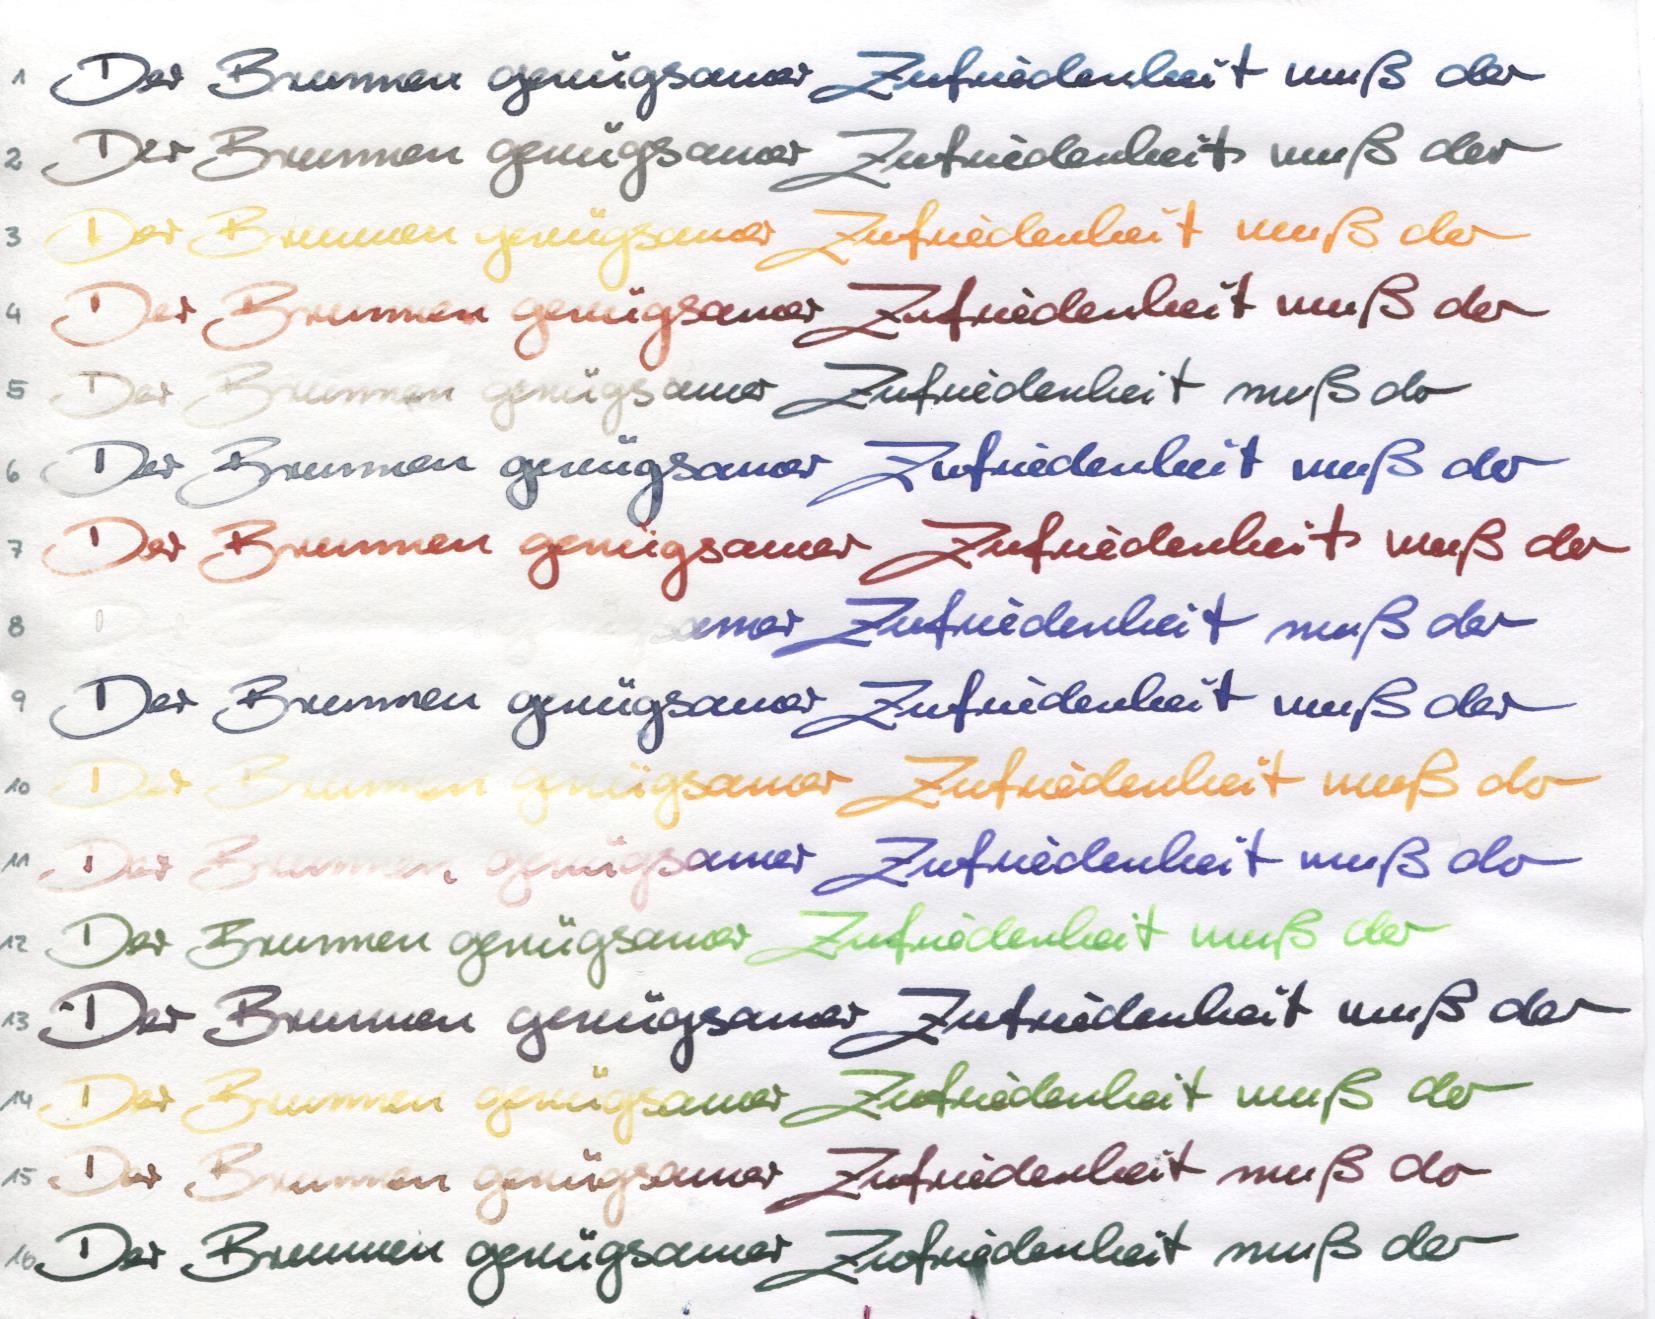 1 Der Brunnen genügsamer Zufriedenheit muß der
2 Der Brunnen genügsamer Zufriedenheit muß der
3 Der Brunnen genügsamer Zufriedenheit muß der
4 Der Brunnen genügsamer Zufriedenheit muß der
5 Der Brunnen genügsamer Zufriedenheit muß der
6 Der Brunnen genügsamer Zufriedenheit muß der
7 Der Brunnen genügsamer Zufriedenheit muß der
8 Zufriedenheit muß der
9 Der Brunnen genügsamer Zufriedenheit muß der
10 Der Brunnen genügsamer Zufriedenheit muß der
11 Der Brunnen genügsamer Zufriedenheit muß der
12 Der Brunnen genügsamer Zufriedenheit muß der
13 Der Brunnen genügsamer Zufriedenheit muß der
14 Der Brunnen genügsamer Zufriedenheit muß der
15 Der Brunnen genügsamer Zufriedenheit muß der
16 Der Brunnen genügsamer Zufriedenheit muß der